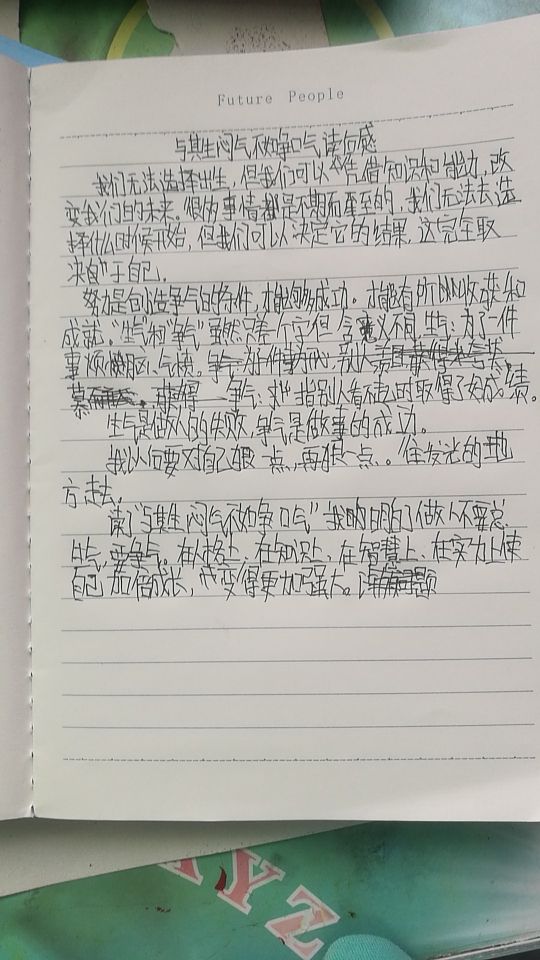 Future People
与其生闷气不如争口气读后感
我们无法选择出生，但我们可以凭借知识和能力，改
变我们的未来。很多事情都是不期而至至的，我们无法去选
择什么时候开始，但我们可以决定它的结果，这完全取
决于自己。
努力是创造争气的条件，才能够成功。才能有所收获和
成就。"生气"和"争气"虽然只差一个字但 意义不同 生气：为了一件
事烦恼 气愤。 别人
获得 争气：指别人看不起时取得了好成绩。
生气是做人的失败，争气是做事的成功。
我们要对自己狠一点，再狠一点。往发光的地
方走去。
读了"与其生闷气不如争口气"我明白了做人不要总
生气，要争气。在人格上、在知识上、在智慧上、在实力上使
自己加倍成长，变得更加强大。
XYZ